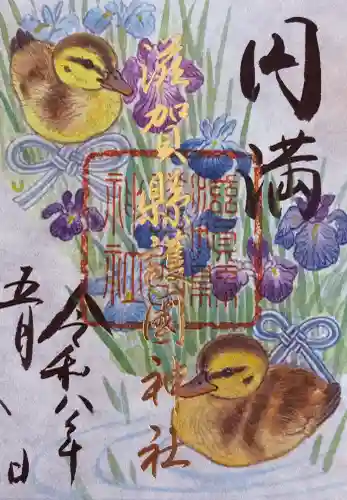 円満
滋賀縣護國神社
令和八年
五月八日